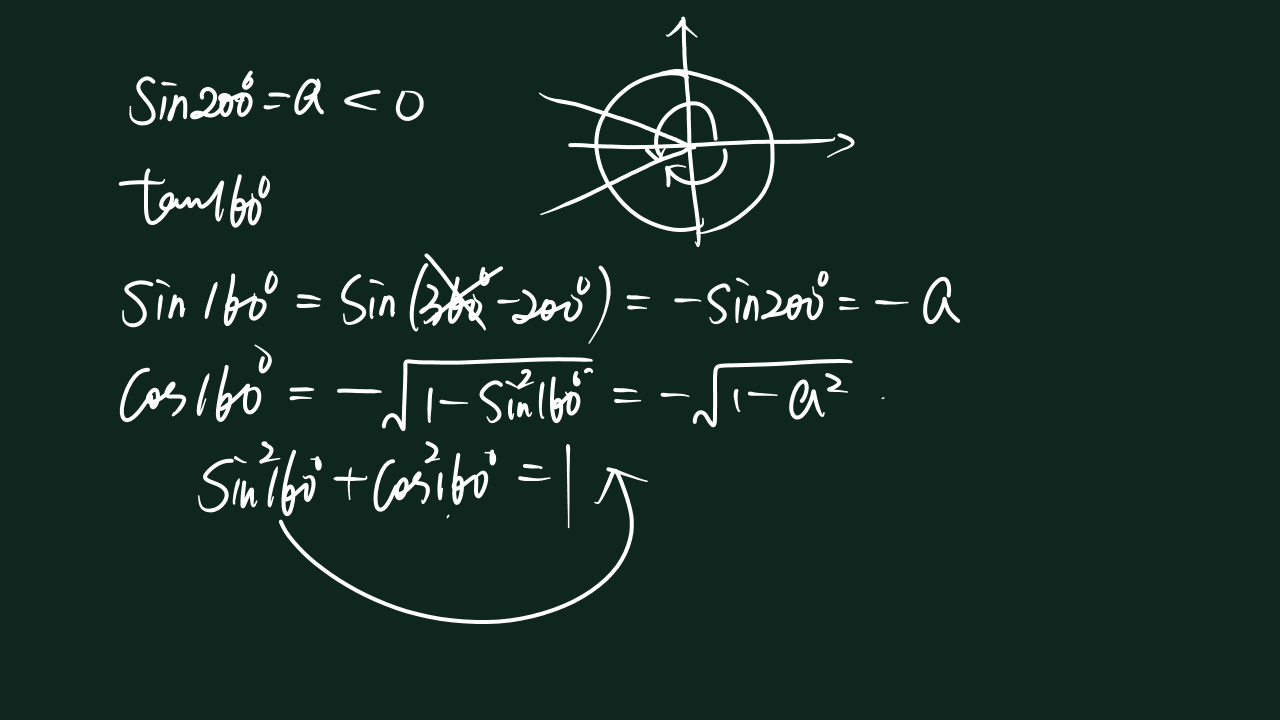 sin200°=a<0
tan160°
sin160°=sin(360°-200°)=-sin200°=-a
cos160°=-√(1-sin²160°)=-√(1-a²)
sin²160°+cos²160°=1